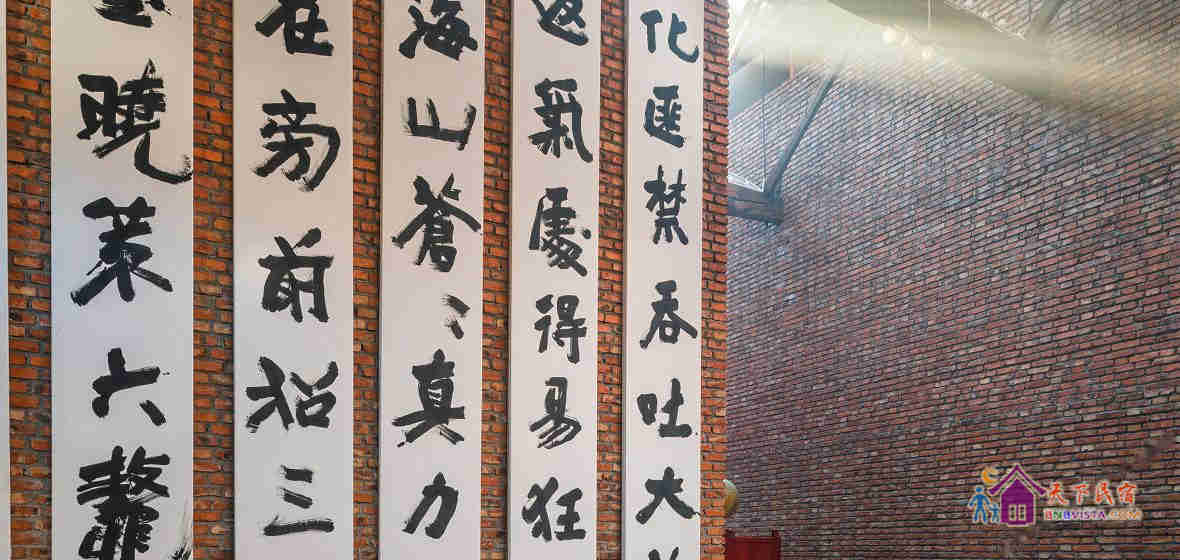 化匪禁吞吐大
返氣處得易狂
海山蒼〻真力
在旁前招三
曉策六鼇
天下民宿
BNBVISTA.COM